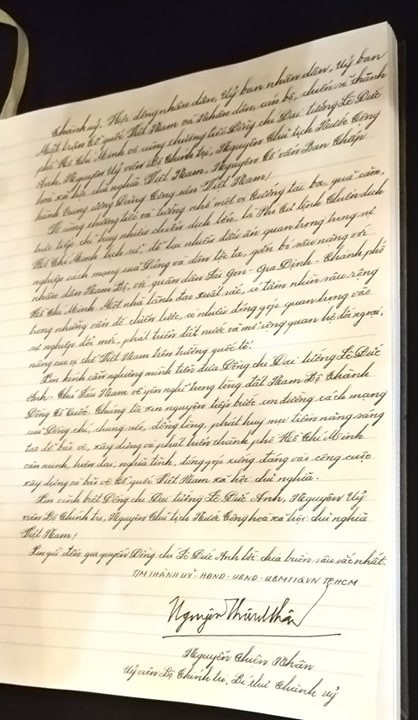 Thành ủy, Hội đồng nhân dân, Uỷ ban nhân dân, Uỷ ban
Mặt trận Tổ quốc Việt Nam và Nhân dân, cán bộ, chiến sĩ Thành
phố Hồ Chí Minh vô cùng thương tiếc Đồng chí Đại tướng Lê Đức
Anh, Nguyên Uỷ viên Bộ Chính trị, Nguyên Chủ tịch Nước Cộng
hoà xã hội chủ nghĩa Việt Nam, Nguyên Cố vấn Ban Chấp
hành Trung ương Đảng Cộng sản Việt Nam!
Vô cùng thương tiếc và tưởng nhớ một vị tướng tài ba, quả cảm,
trực tiếp chỉ huy nhiều chiến dịch lớn, là Phó Tư lệnh Chiến dịch
Hồ Chí Minh lịch sử, để lại nhiều dấu ấn quan trọng trong sự
nghiệp cách mạng của Đảng và dân tộc ta, gắn bó sâu nặng với
nhân dân Nam Bộ, và quân dân Sài Gòn - Gia Định - Thành phố
Hồ Chí Minh. Một nhà lãnh đạo xuất sắc, có tầm nhìn sâu rộng
trong những vấn đề chiến lược, có nhiều đóng góp quan trọng vào
sự nghiệp đổi mới, phát triển đất nước và mở rộng quan hệ đối ngoại,
nâng cao vị thế Việt Nam trên trường quốc tế!
Xin kính cẩn nghiêng mình tiễn đưa Đồng chí Đại tướng Lê Đức
Anh - Chú Sáu Nam về yên nghỉ trong lòng đất Nam Bộ Thành
Đồng Tổ Quốc. Chúng tôi xin nguyện tiếp bước con đường cách mạng
của Đồng chí, chung sức, đồng lòng, phát huy mọi tiềm năng sáng
tạo để bảo vệ, xây dựng và phát triển thành phố Hồ Chí Minh
văn minh, hiện đại, nghĩa tình, đóng góp xứng đáng vào công cuộc
xây dựng và bảo vệ Tổ quốc Việt Nam xã hội chủ nghĩa.
Xin vĩnh biệt Đồng chí Đại tướng Lê Đức Anh, Nguyên Uỷ
viên Bộ Chính trị, Nguyên Chủ tịch Nước Cộng hoà xã hội chủ nghĩa
Việt Nam!
Xin gửi đến gia quyến Đồng chí Lê Đức Anh lời chia buồn sâu sắc nhất.
TM THÀNH UỶ - HĐND - UBND - UBMTTQVN TP.HCM
Nguyễn Thiện Nhân
Nguyễn Thiện Nhân
Uỷ viên Bộ Chính trị, Bí thư Thành uỷ